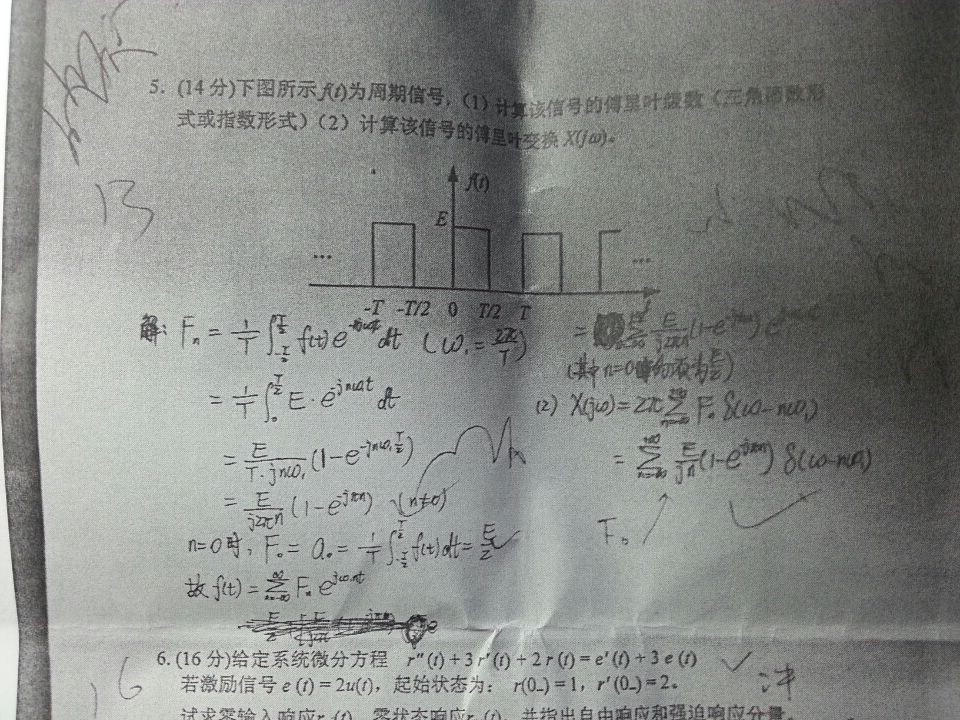 5. (14分)下图所示f(t)为周期信号,(1) 计算该信号的傅里叶级数(三角函数形
式或指数形式)(2) 计算该信号的傅里叶变换 X(jω)。
13
f(t)
E
... ...
-T -T/2 0 T/2 T t
解: Fₙ = 1/T ∫_{-T/2}^{T/2} f(t) e^{-jnω₁t} dt (ω₁ = 2π/T)
= 1/T ∫₀^{T/2} E · e^{-jnω₁t} dt
= E/(T·jnω₁) (1-e^{-jnω₁T/2})
= E/(j2πn) (1-e^{-jπn}) (n≠0)
n=0时, F₀ = a₀ = 1/T ∫_{-T/2}^{T/2} f(t)dt = E/2
故 f(t) = Σ_{n=-∞}^{∞} Fₙ e^{jω₁nt}
= Σ E/(j2πn) (1-e^{-jπn})
(其中n=0时的项为E/2)
(2) X(jω) = 2π Σ_{n=-∞}^{+∞} Fₙ δ(ω-nω₁)
= Σ_{n=-∞}^{+∞} E/(jn) (1-e^{-jπn}) δ(ω-nω₁)
Fₙ
F₀
6. (16分)给定系统微分方程 r″(t)+3r′(t)+2r(t)=e′(t)+3e(t)
16
若激励信号 e(t)=2u(t),起始状态为: r(0₋)=1, r′(0₋)=2。
冲
试求零输入响应 零状态响应 并指出自由响应和强迫响应分量